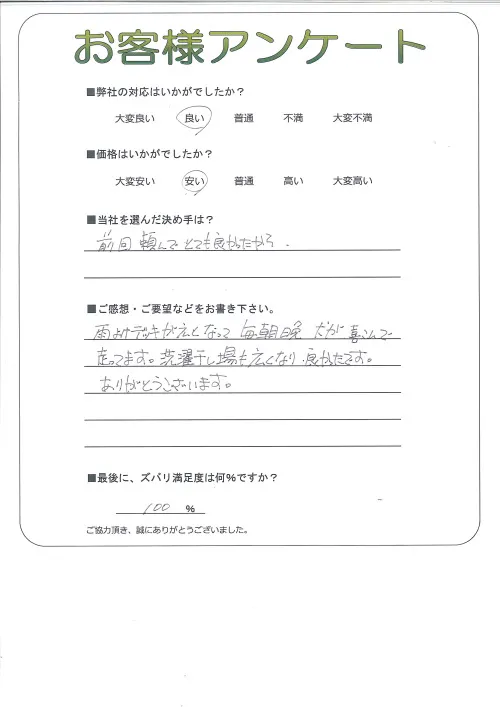 お客様アンケート
■弊社の対応はいかがでしたか?
大変良い 良い 普通 不満 大変不満
■価格はいかがでしたか?
大変安い 安い 普通 高い 大変高い
■当社を選んだ決め手は?
前回頼んでとても良かったから.
■ご感想・ご要望などをお書き下さい。
雨よけデッキが広くなって 毎朝晩 犬が喜んで
走ってます。洗濯干し場も広くなり良かたです。
ありがとうございます。
■最後に、ズバリ満足度は何%ですか?
100 %
ご協力頂き、誠にありがとうございました。